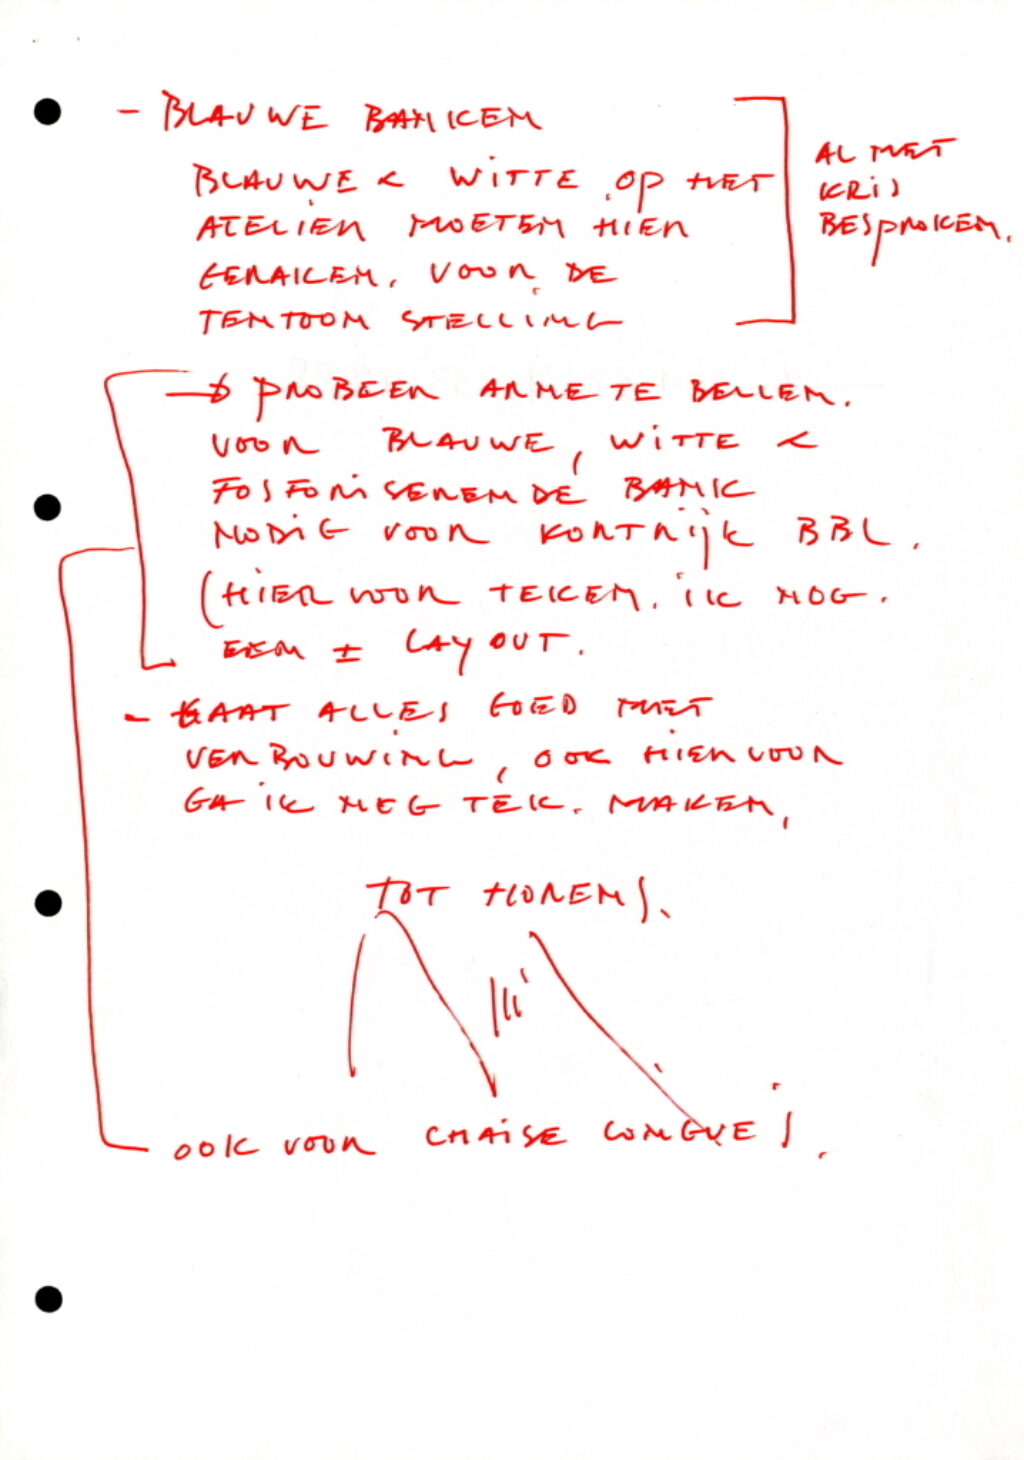 - BLAUWE BANKEN
BLAUWE & WITTE OP HET
ATELIER MOETEN HIER
GERAKEN. VOOR DE
TENTOON STELLING
AL MET
KRIS
BESPROKEN.
→ PROBEER ANNE TE BELLEN.
VOOR BLAUWE, WITTE &
FOSFORISERENDE BANK
NODIG VOOR KORTRIJK BBL.
(HIER VOOR TEKEN. IK NOG.
EEN ± LAY OUT.
- GAAT ALLES GOED MET
VERBOUWING, OOK HIERVOOR
GA IK NEG TEK. MAKEN,
TOT HORENS.
OOK VOOR CHAISE LONGUE'S.